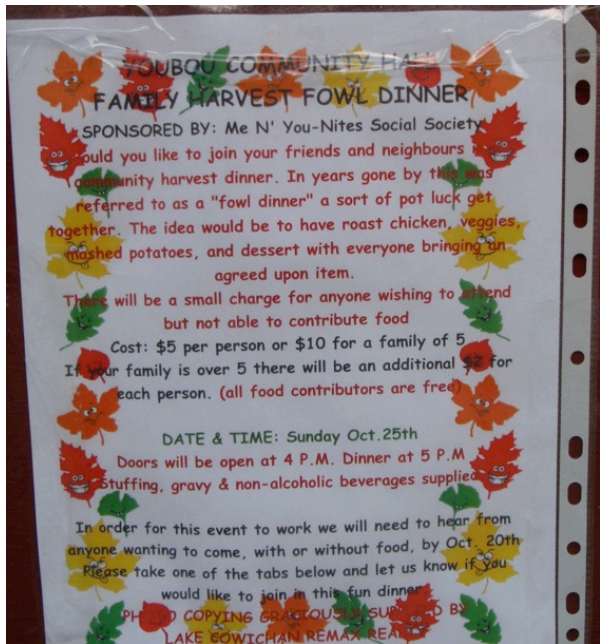 YOUBOU COMMUNITY HALL
FAMILY HARVEST FOWL DINNER
SPONSORED BY: Me N' You-Nites Social Society
ould you like to join your friends and neighbours
community harvest dinner. In years gone by this was
referred to as a "fowl dinner" a sort of pot luck get
together. The idea would be to have roast chicken, veggies,
mashed potatoes, and dessert with everyone bringing an
agreed upon item.
There will be a small charge for anyone wishing to attend
but not able to contribute food
Cost: $5 per person or $10 for a family of 5
If your family is over 5 there will be an additional $2 for
each person. (all food contributors are free)
DATE & TIME: Sunday Oct.25th
Doors will be open at 4 P.M. Dinner at 5 P.M
Stuffing, gravy & non-alcoholic beverages supplied
In order for this event to work we will need to hear from
anyone wanting to come, with or without food, by Oct. 20th
Please take one of the tabs below and let us know if you
would like to join in this fun dinner.
COPYING GRACIOUSLY BY
LAKE COWICHAN REMAX